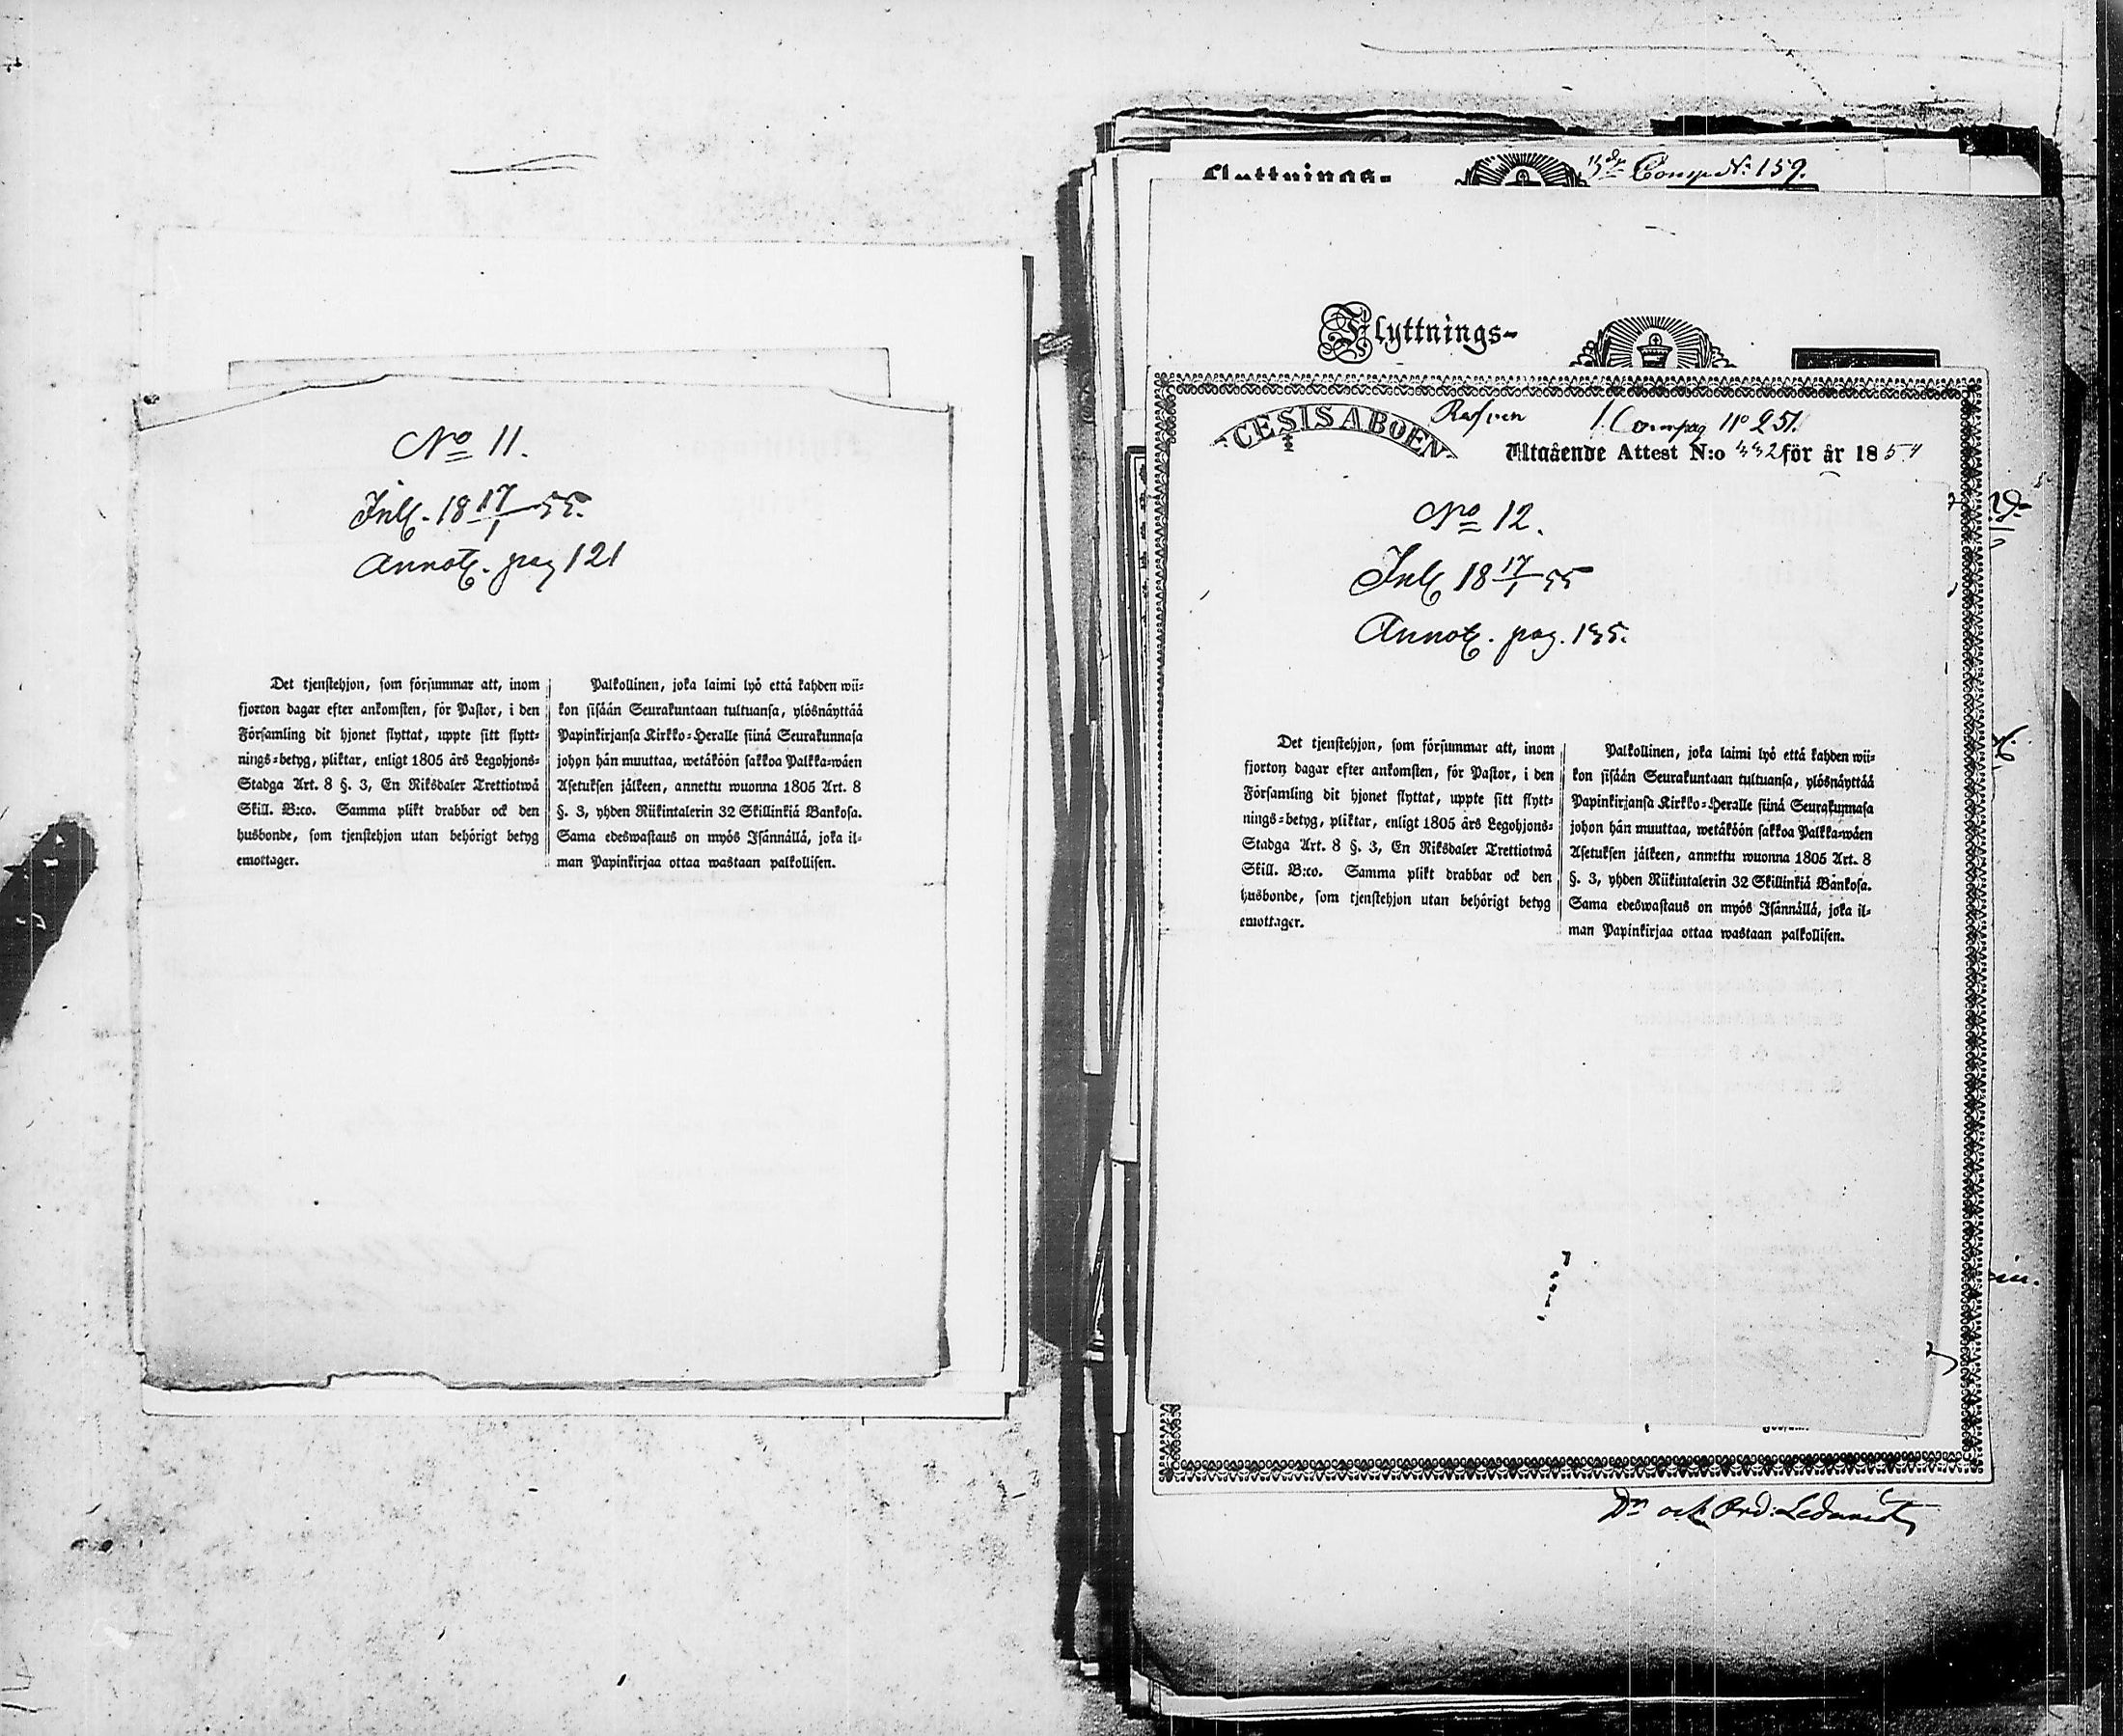 No 11.
Inl. 18 17/1 55.
Annot. pag 121
Det tjenstehjon, som försummar att, inom
fjorton dagar efter ankomsten, för Pastor, i den
Församling dit hjonet flyttat, uppte sitt flytt-
nings-betyg, pliktar, enligt 1805 års Legohjons-
Stadga Art. 8 §. 3, En Riksdaler Trettiotwå
Skill. B:co. Samma plikt drabbar ock den
husbonde, som tjenstehjon utan behörigt betyg
emottager.
Palkollinen, joka laimi lyö että kahden wii-
kon sisään Seurakuntaan tultuansa, ylösnäyttää
Papinkirjansa Kirkko-Heralle siinä Seurakunnasa
johon hän muuttaa, wetäköön sakkoa Palkka-wäen
Asetuksen jälkeen, annettu wuonna 1805 Art. 8
§. 3, yhden Riikintalerin 32 Skillinkiä Bankosa.
Sama edeswastaus on myös Isännällä, joka il-
man Papinkirjaa ottaa wastaan palkollisen.
Flyttnings-
3dje Comp No 159.
Flyttnings-
CESIS ABOEN
1. Compag No 251.
Utgående Attest N:o 332 för år 1854
No 12.
Inl 18 17/1 55
Annot. pag. 135.
Det tjenstehjon, som försummar att, inom
fjorton dagar efter ankomsten, för Pastor, i den
Församling dit hjonet flyttat, uppte sitt flytt-
nings-betyg, pliktar, enligt 1805 års Legohjons-
Stadga Art. 8 §. 3, En Riksdaler Trettiotwå
Skill. B:co. Samma plikt drabbar ock den
husbonde, som tjenstehjon utan behörigt betyg
emottager.
Palkollinen, joka laimi lyö että kahden wii-
kon sisään Seurakuntaan tultuansa, ylösnäyttää
Papinkirjansa Kirkko-Heralle siinä Seurakunnasa
johon hän muuttaa, wetäköön sakkoa Palkka-wäen
Asetuksen jälkeen, annettu wuonna 1805 Art. 8
§. 3, yhden Riikintalerin 32 Skillinkiä Bankosa.
Sama edeswastaus on myös Isännällä, joka il-
man Papinkirjaa ottaa wastaan palkollisen.
och Ord: